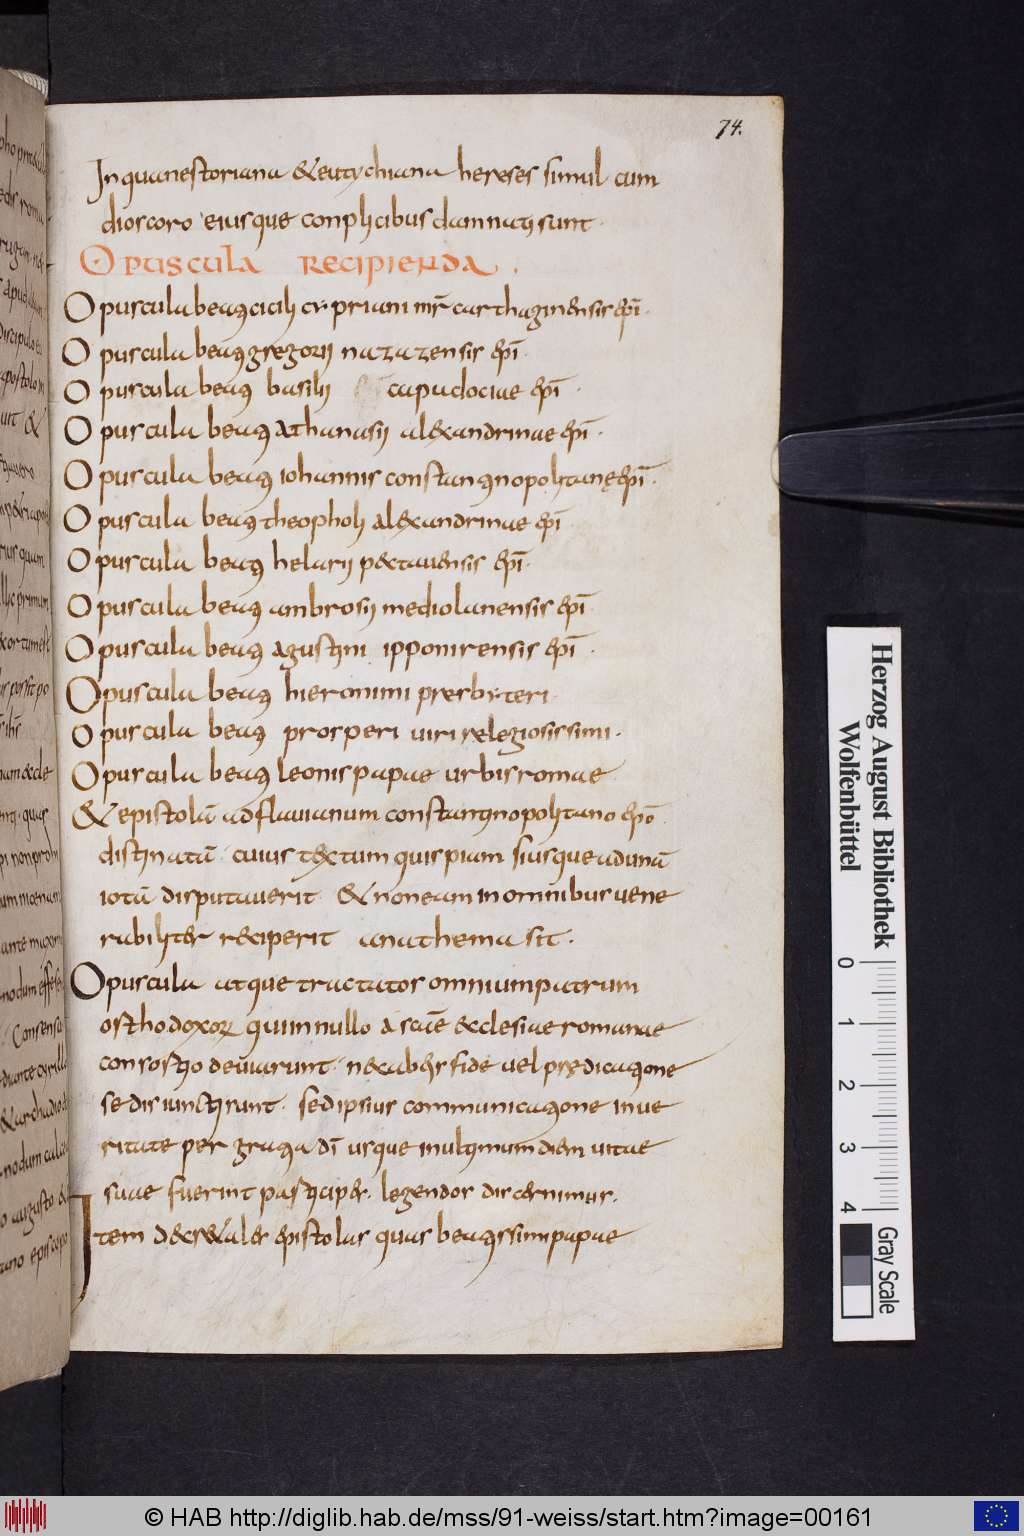 74.
In qua nestoriana & eutychiana hereses simul cum
dioscoro eiusque conplicibus damnati sunt·
Opuscula recipienda.
Opuscula beati cicilii cypriani mr̄ carthaginensis ep̄i·
Opuscula beati gregorii nazazensis ep̄i·
Opuscula beati basilii capudociae ep̄i·
Opuscula beati athanasii alexandrinae ep̄i·
Opuscula beati iohannis constantinopolitanę ep̄i·
Opuscula beati theopholi alexandrinae ep̄i
Opuscula beati helarii pectauensis ep̄i·
Opuscula beati ambrosii mediolanensis ep̄i
Opuscula beati agustini ipponirensis ep̄i·
Opuscula beati hieronimi presbyteri·
Opuscula beati prosperi uiri relegiosissimi·
Opuscula beati leonis papae urbis romae
& epistolā ad flauianum constantinopolitano ep̄o
distinatā· cuius textum quispiam siusque ad unā
iotā disputauerit & non eam in omnibus uene
rabiliter receperit anathema sit·
Opuscula atque tractatos omnium patrum
osthodoxoꝝ qui in nullo a scāe ecclesiae romanae
consostio deuiarunt· nec ab eiꝰ fide uel prędicatione
se disiunctirunt· sed ipsius communicatione in ue
ritate per gratia dī usque in ultimum diem uitae
suae fuerint pasticiper· legendos discernimus·
Item decretales epistolas quas beatissimi papae
Herzog August Bibliothek
Wolfenbüttel
0 1 2 3 4
Gray Scale
© HAB http://diglib.hab.de/mss/91-weiss/start.htm?image=00161